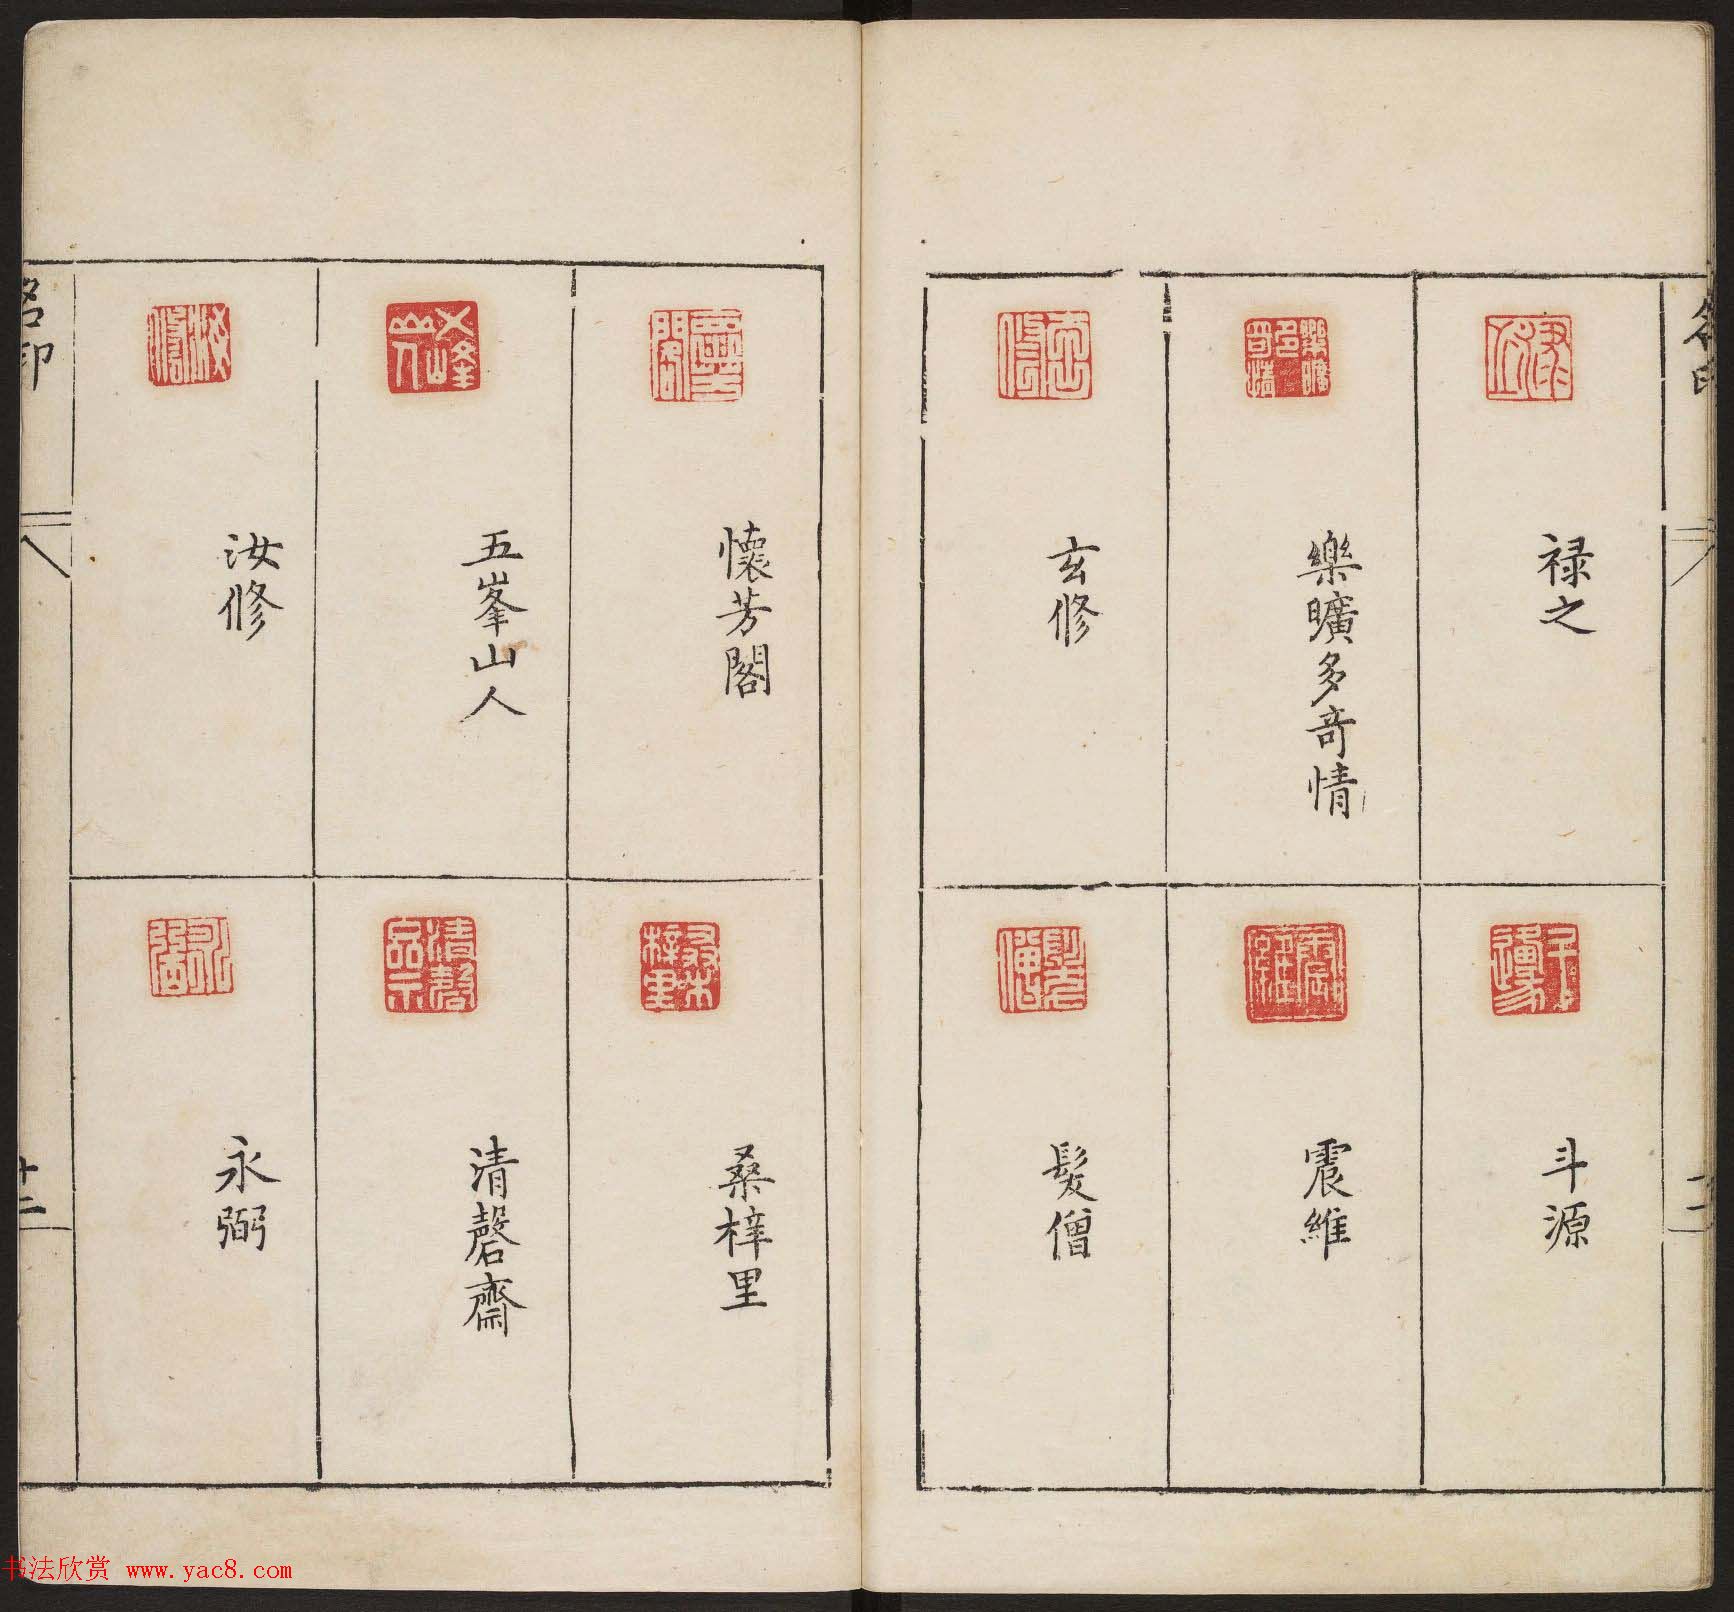 禄之
樂曠多奇情
玄修
斗源
震維
髮僧
懷芳閣
五峯山人
汝修
桑梓里
清磬齋
永弼
名印
十二
书法欣赏 www.yac8.com